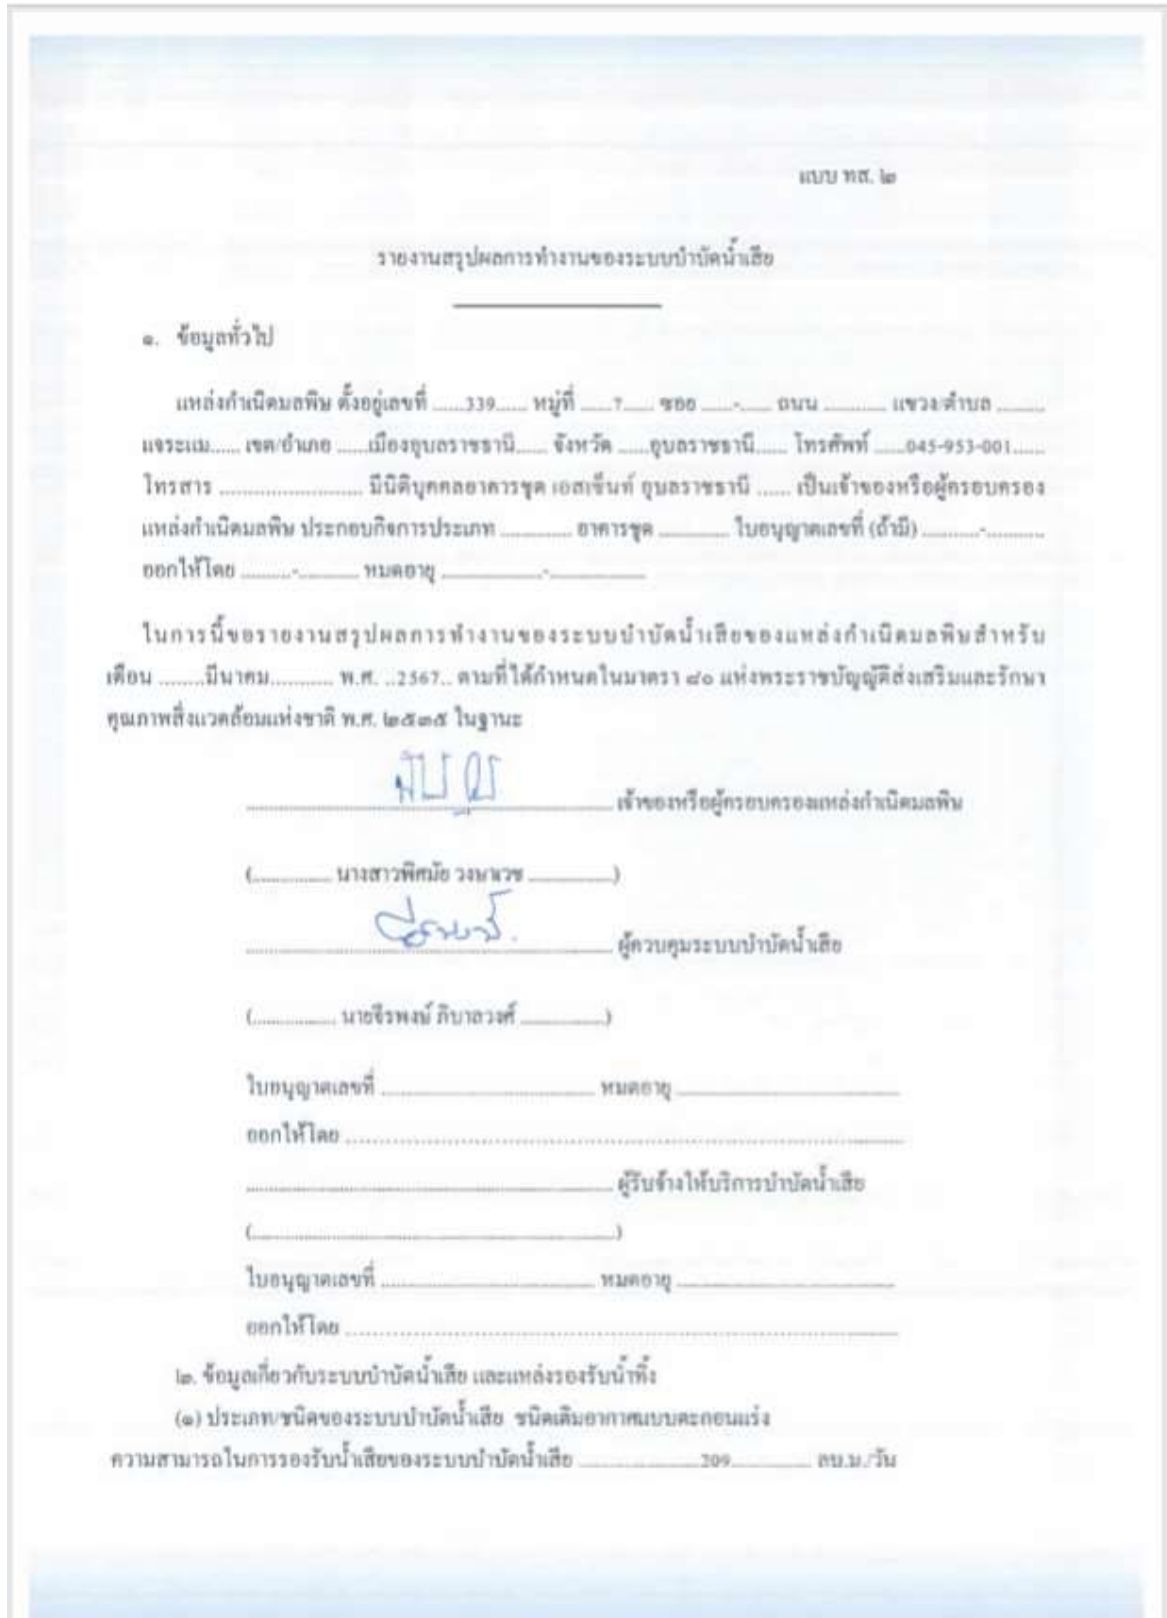 แบบ ทส. ๒
รายงานสรุปผลการทำงานของระบบบำบัดน้ำเสีย
๑. ข้อมูลทั่วไป
แหล่งกำเนิดมลพิษ ตั้งอยู่เลขที่ ......339...... หมู่ที่ ......7...... ซอย ......-...... ถนน ............ แขวง/ตำบล .........
แจระแม...... เขต/อำเภอ ......เมืองอุบลราชธานี...... จังหวัด ......อุบลราชธานี...... โทรศัพท์ ......045-953-001......
โทรสาร ........................... มีนิติบุคคลอาคารชุด เอสเซ็นท์ อุบลราชธานี ...... เป็นเจ้าของหรือผู้ครอบครอง
แหล่งกำเนิดมลพิษ ประกอบกิจการประเภท .............. อาคารชุด .............. ใบอนุญาตเลขที่ (ถ้ามี) ...........-...........
ออกให้โดย ..........-............ หมดอายุ ....................-...................
ในการนี้ขอรายงานสรุปผลการทำงานของระบบบำบัดน้ำเสียของแหล่งกำเนิดมลพิษสำหรับ
เดือน .........มีนาคม............. พ.ศ. ..2567.. ตามที่ได้กำหนดในมาตรา ๘๐ แห่งพระราชบัญญัติส่งเสริมและรักษา
คุณภาพสิ่งแวดล้อมแห่งชาติ พ.ศ. ๒๕๓๕ ในฐานะ
........................................ เจ้าของหรือผู้ครอบครองแหล่งกำเนิดมลพิษ
(................ นางสาวพิศมัย วงษาเวช .................)
........................................ ผู้ควบคุมระบบบำบัดน้ำเสีย
(................. นายจีรพงษ์ ภิบาลวงศ์ .................)
ใบอนุญาตเลขที่ ........................................ หมดอายุ ........................................
ออกให้โดย ................................................................................
........................................ ผู้รับจ้างให้บริการบำบัดน้ำเสีย
(................................................................)
ใบอนุญาตเลขที่ ........................................ หมดอายุ ........................................
ออกให้โดย ................................................................................
๒. ข้อมูลเกี่ยวกับระบบบำบัดน้ำเสีย และแหล่งรองรับน้ำทิ้ง
(๑) ประเภท/ชนิดของระบบบำบัดน้ำเสีย ชนิดเติมอากาศแบบตะกอนเเร่ง
ความสามารถในการรองรับน้ำเสียของระบบบำบัดน้ำเสีย .......................209............... ลบ.ม./วัน